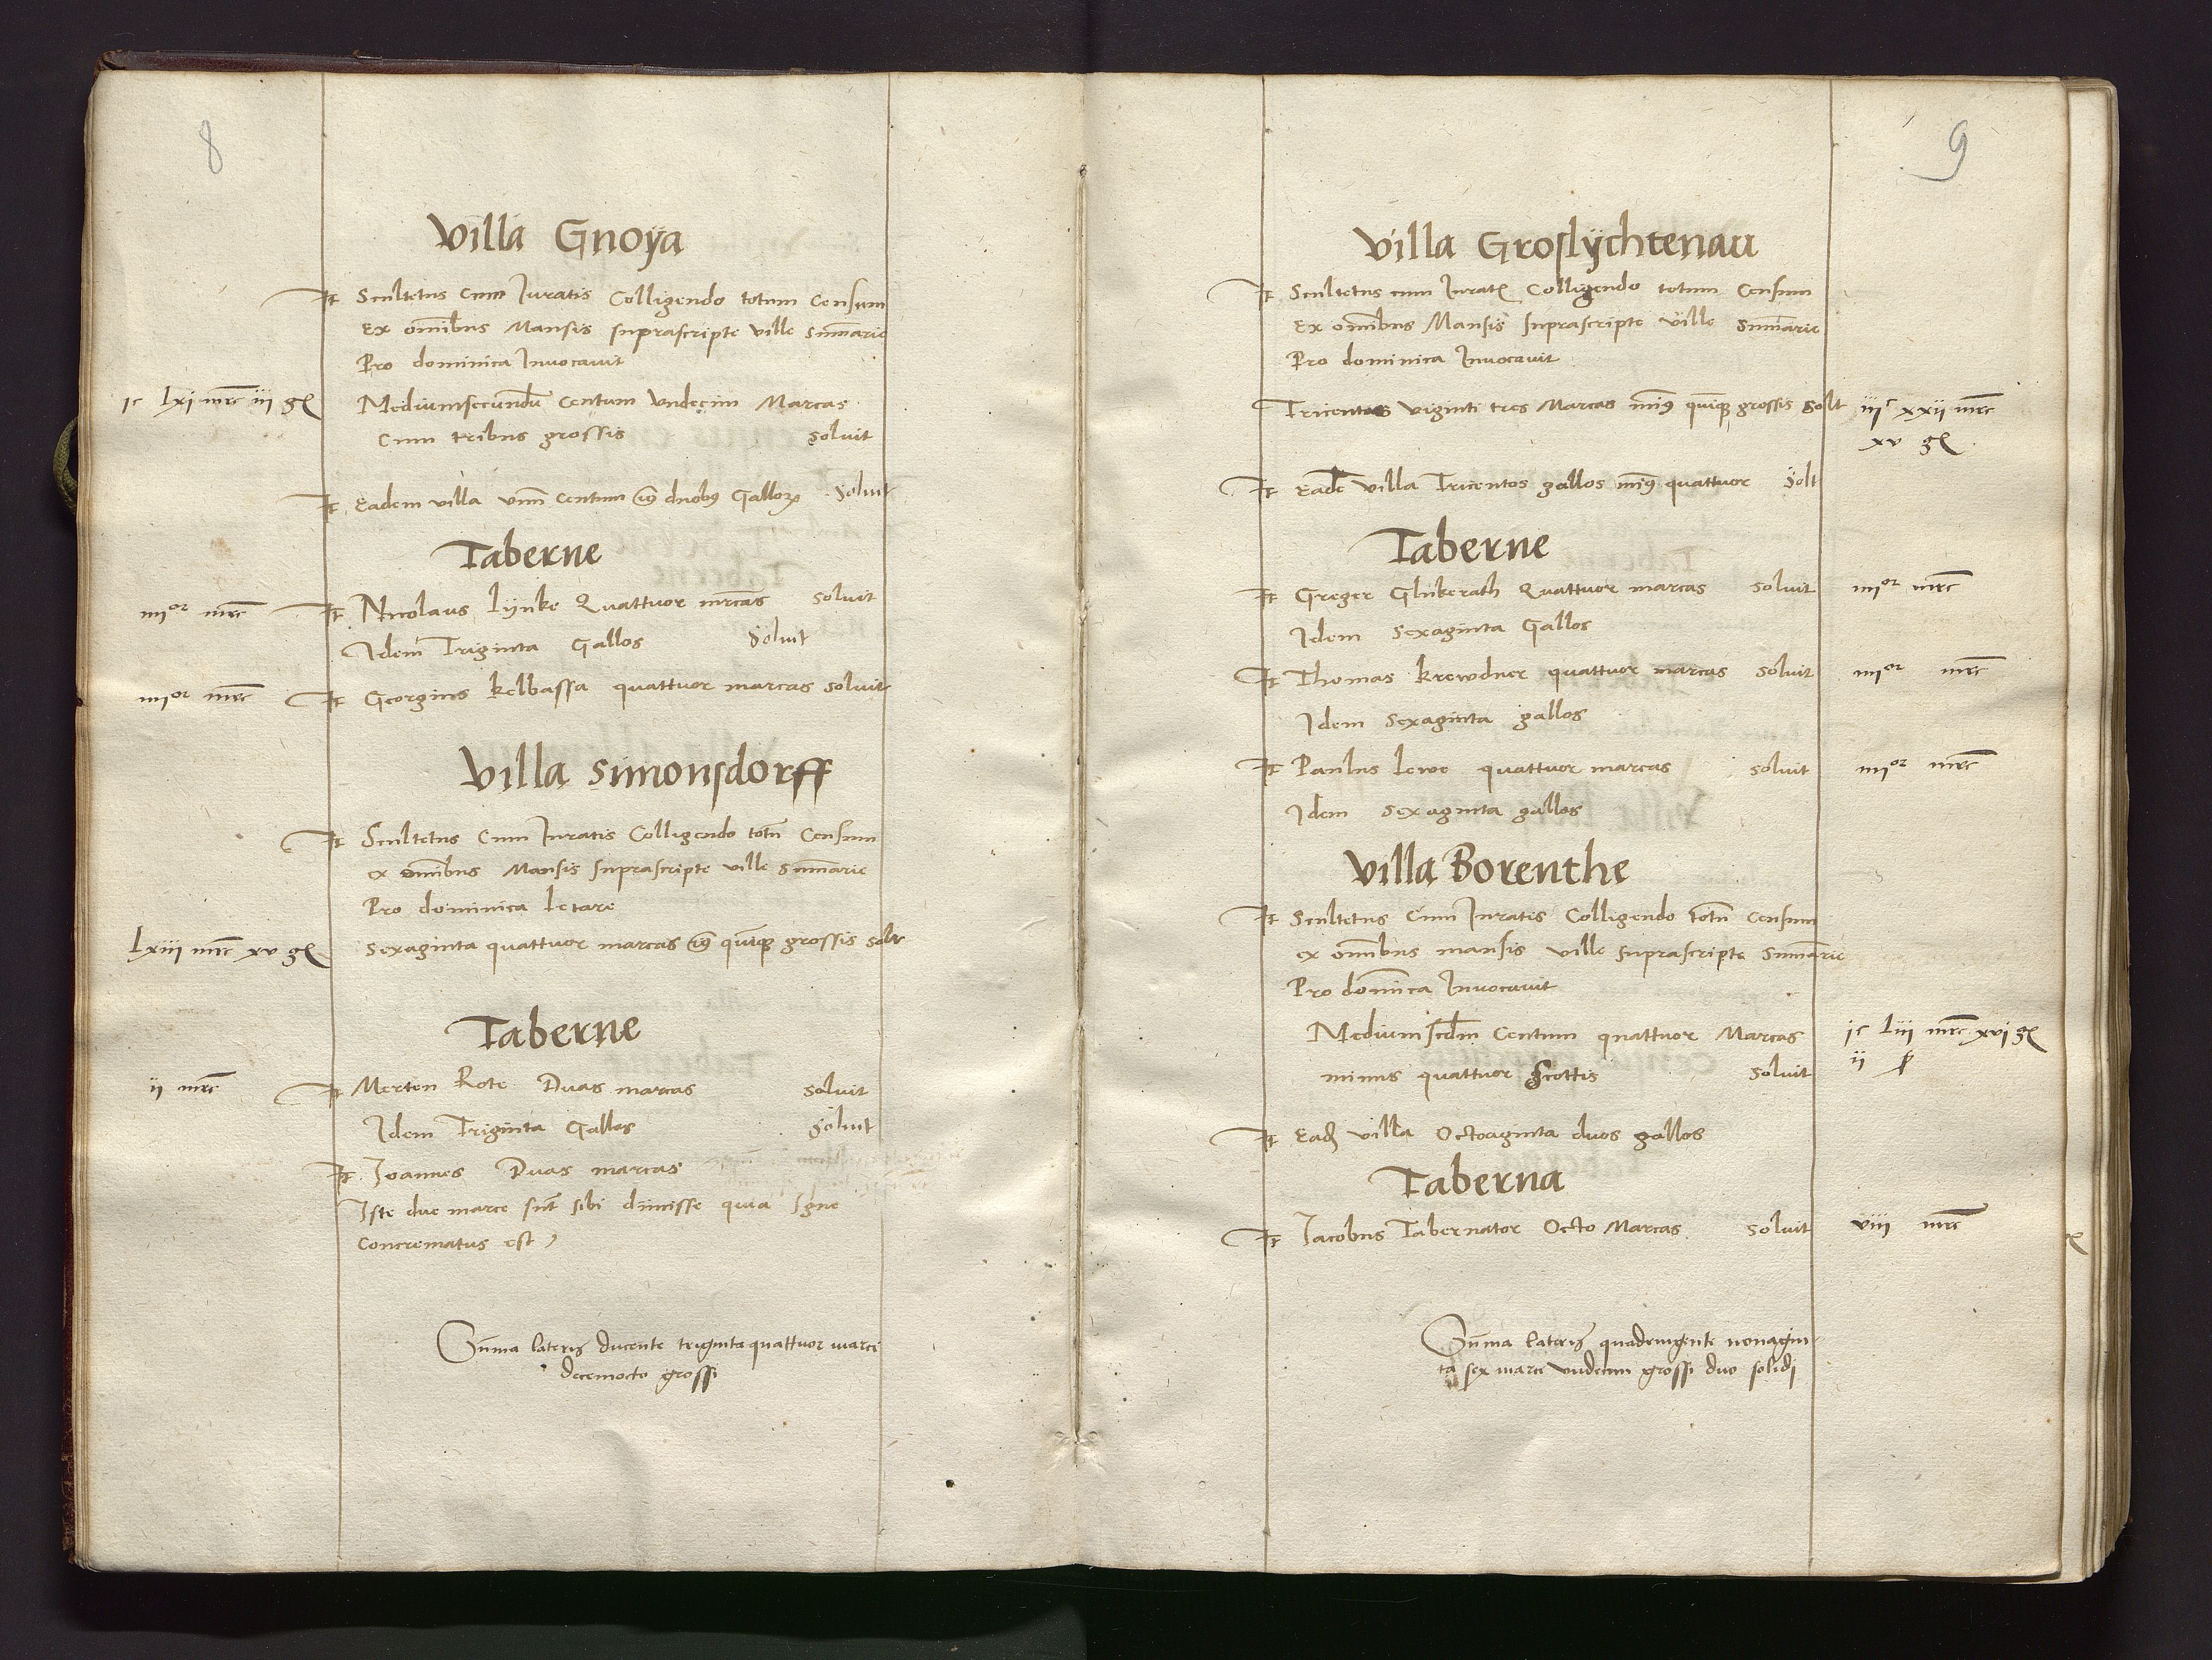 8
Villa Gnoÿa
It Scultetus cum Iuratis Colligendo totum Censum
Ex om̄ibus Mansis suprascripte ville Sum̄arie
Pro dominica Inuocauit
jc lxj mrc iij gr Mediumsecundū Centum Vndecim Marcas
Cum tribus grossis soluit
It Eadem villa vnū Centum duobus Gallorum soluit
Taberne
iiijor mrc It Nicolaus Lÿnke Quattuor mrcas soluit
Idem Triginta Gallos soluit
iiijor mrc It Georgius kelbassa quattuor marcas soluit
Villa Simonsdorff
It Scultetus Cum Iuratis Colligendo totū Censum
ex om̄ibus Mansis suprascripte ville Sum̄arie
Pro dominica letare
Lxiij mrc xv gr Sexaginta quattuor marcas quīqꝫ grossis solt
Taberne
ij mrc It Merten Rote Duas marcas soluit
Idem Triginta Gallos soluit
It Joannes Duas marcas
Iste due marce sūt sibi dimisse quia Igne
Concrematus est
Sum̄a lateris ducente trigintaquattuor marce
decemocto grossi
9
Villa Groslÿchtenau
It Scultetus cum Iuratis Colligendo totum Censum
Ex om̄ibus Mansis suprascripte ville Sum̄arie
Pro dominica Inuocauit
Tricentas viginti tres Marcas minus quīqꝫ grossis Solt iijc xxij mrc
xv gr
It Eadē villa Tricentos gallos minus quattuor Solt
Taberne
It Greger Glukerath Quattuor marcas soluit iiijor mrc
Idem Sexaginta Gallos
It Thomas krewdner quattuor marcas soluit iiijor mrc
Idem Sexaginta gallos
It Paulus Lewe quattuor marcas soluit iiijor mrc
Idem Sexaginta gallos
Villa Borenthe
It Scultetus Cum Iuratis Colligendo totū Censum
ex om̄ibus mansis ville suprascripte Sum̄arie
Pro domīca Inuocauit
Mediumscdm Centum quattuor Marcas jc liij mrc xvj gr
minus quattuor Scottis soluit ij
It Eadē villa Octoaginta duos gallos
Taberna
It Jacobus Tabernator Octo Marcas soluit viij mrc
Sum̄a lateris quadringente nonagin
ta sex marce vndecim grossi duo solidi